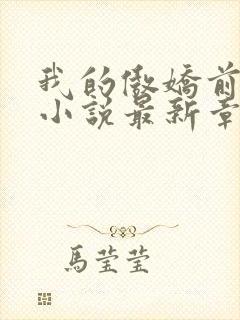 我的傲嬌前
小說最新章
馬瑩瑩